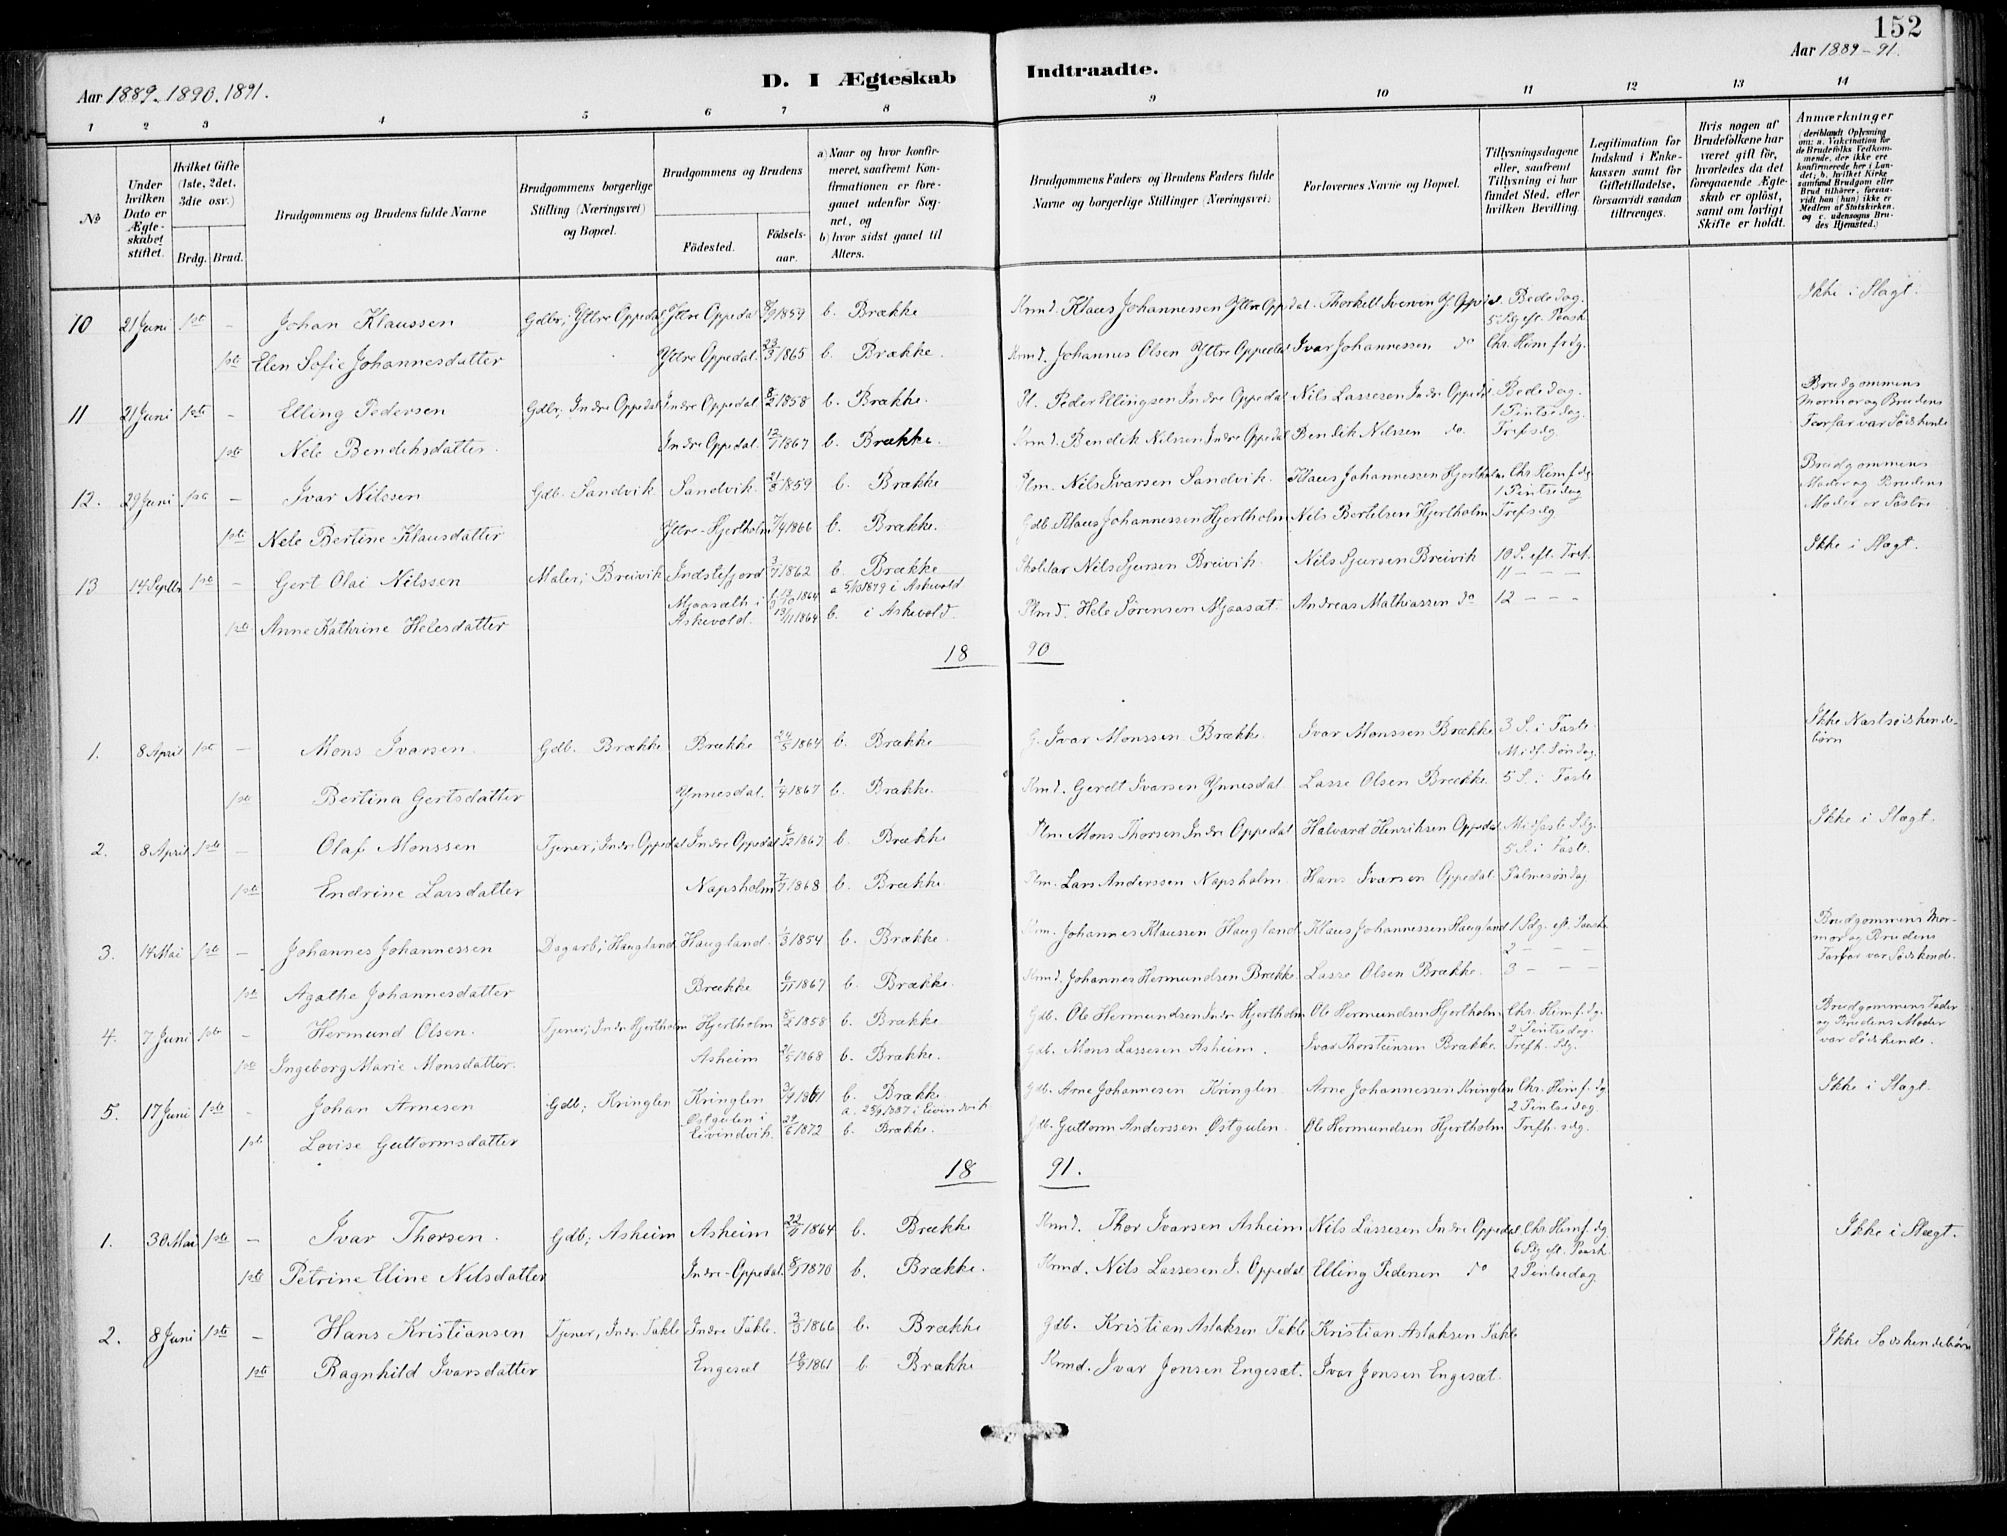 152
Aar 1889. 1890. 1891.
D. I Ægteskab
Indtraadte.
Aar 1889-91.
1 2 3 4 5 6 7 8 9 10 11 12 13 14
№
Under hvilken Dato er Ægteskabet stiftet.
Hvilket Gifte (1ste, 2det, 3dte osv.)
Brdg. Brud.
Brudgommens og Brudens fulde Navne
Brudgommens borgerlige Stilling (Næringsvei) og Bopæl.
Brudgommens og Brudens
Födested.
Födselsaar.
a) Naar og hvor konfirmeret, saafremt Konfirmationen er foregaaet udenfor Sognet, og
b) hvor sidst gaaet til Alters.
Brudgommens Faders og Brudens Faders fulde Navne og borgerlige Stillinger (Næringsvei)
Forlovernes Navne og Bopæl.
Tillysningsdagene eller, saafremt Tillysning ei har fundet Sted, efter hvilken Bevilling.
Legitimation for Indskud i Enkekassen samt for Giftetilladelse, forsaavidt saadan tiltrænges.
Hvis nogen af Brudefolkene har været gift för, hvorledes da det foregaaende Ægteskab er oplöst, samt om lovligt Skifte er holdt.
Anmærkninger
(deriblandt Oplysning om: a. Vakcination for de Brudefolks Vedkommende, der ikke ere konfirmerede her i Landet; b. hvilket Kirkesamfund Brudgom eller Brud tilhörer, forsaavidt han (hun) ikke er Medlem af Statskirken, og c. udensogns Brudes Hjemsted.)
10 21 Juni 1ste - Johan Klaussen Gdbr; Yttre Oppedal Yttre Oppedal 1859 b. Brække Kmd. Klaus Johannessen Yttre Oppedal. Thorkell Iverson Y. Oppedal. Bededag. Ikke i Slagt.
5 Sdg eft. Paask
1ste Elen Sofie Johannesdatter Yttre Oppedal 23/3 1865 b. Brække. Kmd. Johannes Olsen Yttre Oppedal Ivar Johannessen do Chr. Himf.dg.
11 21 Juni 1ste - Elling Pedersen Gdbr; Indre Oppedal Indre Oppedal 8/2 1858 b. Brække. Pl. Peder Ellingsen Indre Oppedal Nils Lassesen Indre Oppedal Bededag. Brudgommens
1 Pintsedag. Mormor og Brudens
1ste Nele Bendiksdatter. Indre Oppedal. 12/1 1867 b. Brække. Kmd. Bendik Nilssen Indre Oppedal Bendik Nilssen do. Trefsdg Farfar var Sødskende
12. 29 Juni 1ste - Ivar Nilssen Gdb. Sandvik Sandvik. 1859 b. Brække Plm. Nils Ivarsen Sandvik. Klaus Johannessen Hjertholm Chr. Himf.dg Brudgommens
1 Pintsedag Moder og Brudens
1ste Nele Bertine Klausdatter Yttre-Hjertholm 7/4 1866 b. Brække. Gdb. Klaus Johannessen Hjertholm Nils Bertelsen Hjertholm Trefsdg Moder er Søstre
13 14 Septbr 1ste - Gert Olai Nilssen Maler; Breivik Indstefjord 3/7 1862 b. Brække Skoldar Nils Sjursen Breivik. Nils Sjursen Breivik 10 S. eft. Tref. Ikke i Slagt.
a 5/10 1879 i Askevold 11 - - -
1ste Anne Kathrine Helesdatter Mjaasæth i Askevold. 19/11 1864 b. i Askevold. Plmd. Hele Sørensen Mjaasæt. Andreas Mathiassen do 12 - - -
18 90
1. 8 April 1ste - Mons Ivarsen. Gdb. Brække Brække 24/5 1864 b. Brække G. Ivar Monssen Brække. Ivar Monssen Brække 3 S. i Faste. Ikke Næstsødskende-
Midf. Søndag børn
1ste Bertina Gertsdatter Ynnesdal. 1867 b. Brække. Kmd. Geredt Ivarsen Ynnesdal Lasse Olsen Brække. 5 S. i Faste
2. 8 April 1ste - Olaf Monssen Tjener; Indre Oppedal Indre Oppedal 6/12 1867 b. Brække Plm Mons Thorsen Indre Oppedal Halvard Henriksen Oppedal Midfaste Sdg. Ikke i Slagt.
5 S. i Faste.
1ste Endrine Larsdatter Napsholm 7/7 1868 b. Brække Plm. Lars Anderssen Napsholm. Hans Ivarsen Oppedal. Palmesøndag
3. 14 Mai 1ste - Johannes Johannessen Dagarb; Haugland Haugland. 1/3 1854 b. Brække. Kmm. Johannes Klaussen Haugland Klaus Johannessen Haugland 1 Sdg. eft. Paaske Brudgommens Mor-
2 - - - mor og Brudens
1ste Agathe Johannesdatter Brække 6/11 1867 b. Brække. Kmd. Johannes Hermundsen Brække. Lasse Olsen Brække. 3 - - - Farfar var Sødskende.
4. 7 Juni 1ste - Hermund Olsen. Tjener; Indre Hjertholm Hjertholm 8/2 1858 b. Brække Gdb. Ole Hermundsen Indr Hjertholm Ole Hermundsen Hjertholm Chr. Himf.dg. Brudgommens Fader
2 Pintsedag. og Brudens Moder
1ste Ingeborg Marie Monsdatter. Asheim 1868 b. Brække. Gdb. Mons Lassesen Asheim. Ivar Thorsteinsen Brække. Trefh. Sdg. var Sødskende.
5. 17 Juni 1ste - Johan Arnesen Gdb; Kringlen Kringlen 3/9 1861 b. Brække Gdb. Arne Johannesen Kringlen Arne Johannessen Kringlen Chr. Himf.dg Ikke i Slagt.
a. 25/9 1887 i Eivindvik 2 Pintsedag
1ste Lovise Guttormsdatter Østgulen i Eivindvik. 29/6 1872 b. Brække. Gdb. Guttorm Anderssen Østgulen Ole Hermundsen Hjertholm Trefh. sdg.
18 91.
1. 30 Mai 1ste - Ivar Thorsen. Gdb; Asheim Asheim 1864 b. Brække Kmd. Thor Ivarsen Asheim Nils Lassesen Indre Oppedal Chr. Himf.dg Ikke i Slægt.
6 Sdg eft. Paask.
1ste Petrine Eline Nilsdatter Indre-Oppedal. 1870 b. Brække. Kmd. Nils Lassesen I. Oppedal Elling Pedersen do 2 Pintsedag.
2. 8 Juni 1ste - Hans Kristiansen Tjener, Indr. Takle Indre Takle. 3/3 1866 b. Brække Gdb. Kristian Aslaksen Takle Kristian Aslaksen Takle Ikke Sødskendebørn
1ste Ragnhild Ivarsdatter Engesæt 1861 b Brække Kmd. Ivar Jonsen Engesæt. Ivar Jonsen Engesæt.